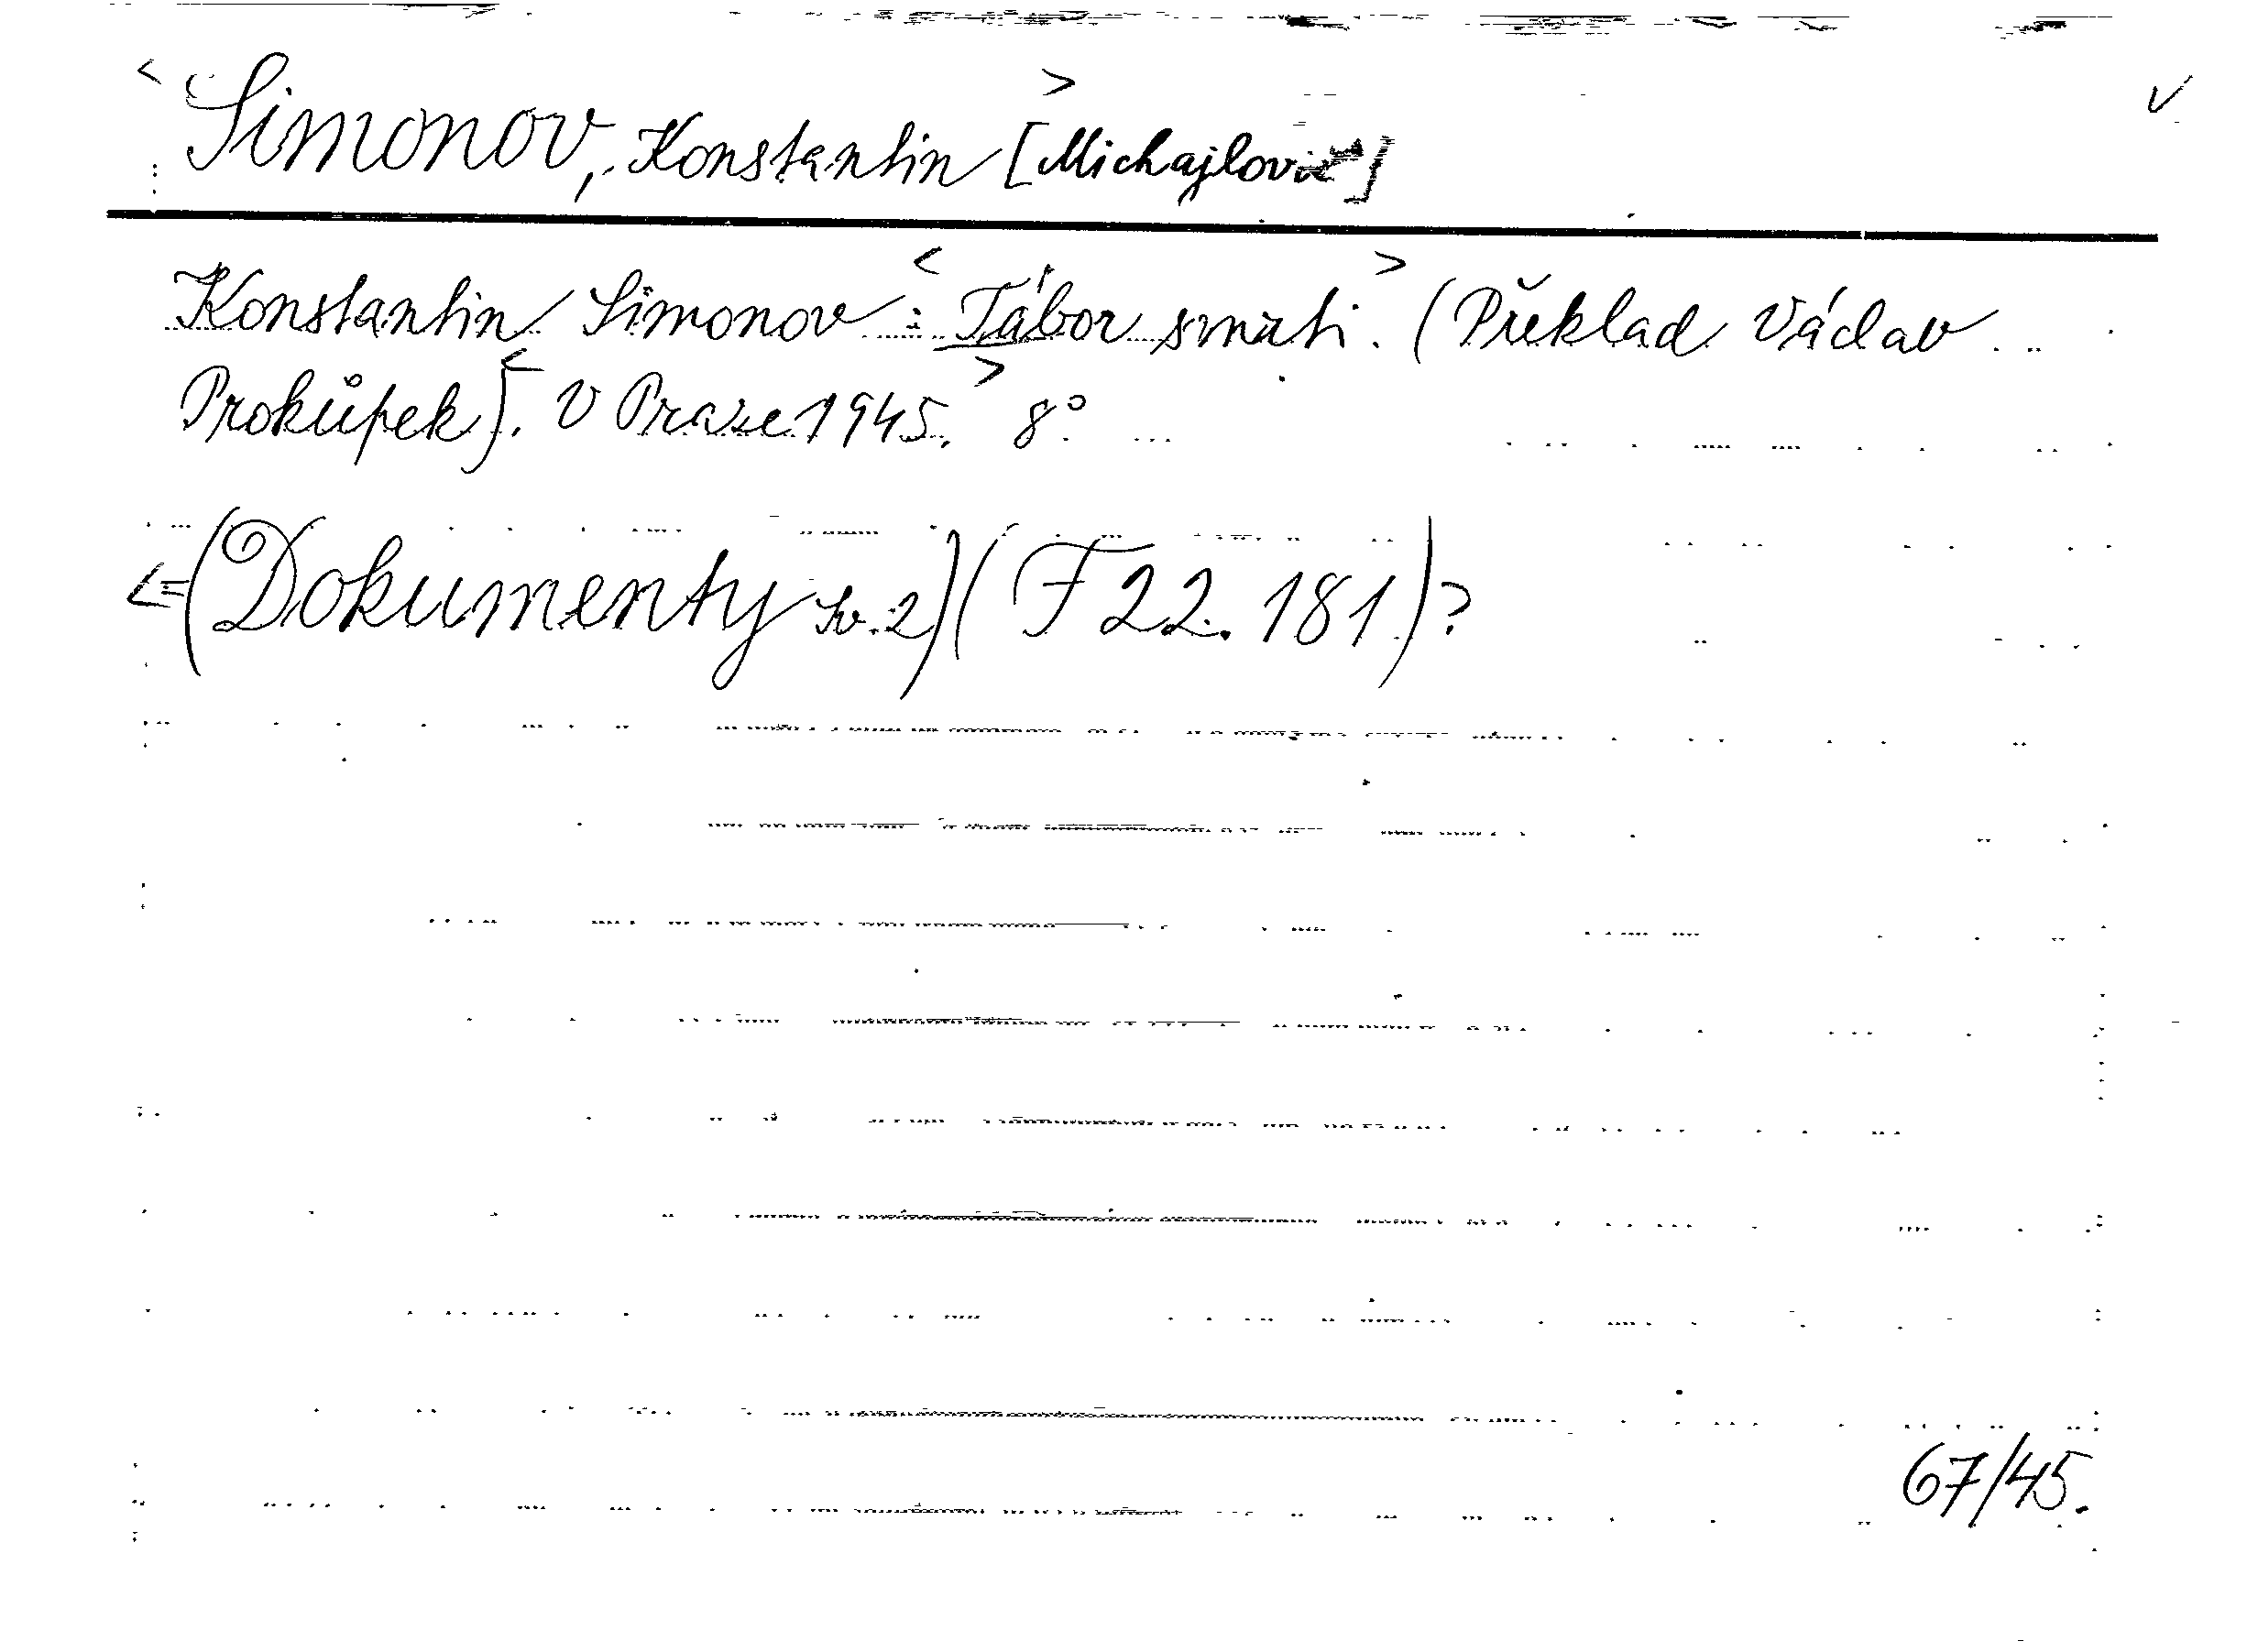 < Simonov, Konstantin > [Michajlovič] √
Konstantin Simonov: < Tábor smrti. > (Překlad Václav
Prokůpek). < V Praze 1945. > 8°
<= (Dokumenty sv. 2) (F 22.181)?
67/45.